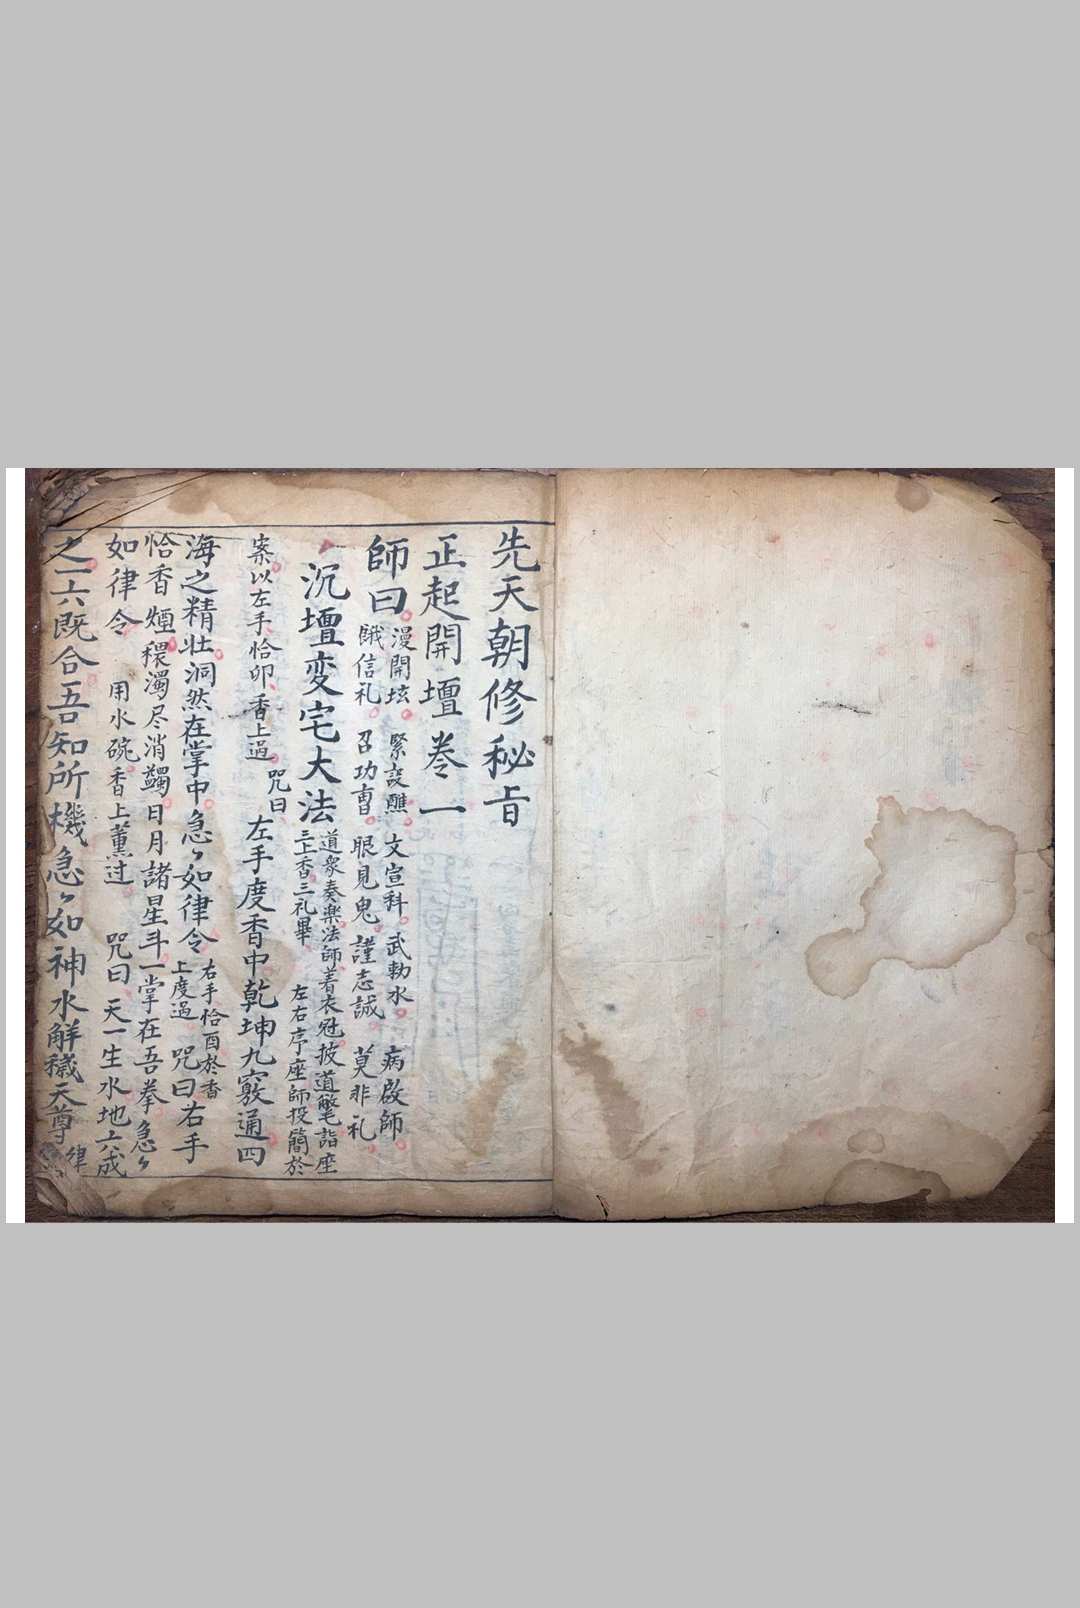 先天朝修秘旨
正起開壇卷一
師曰
漫開坛 緊設醮 文宣科 武勅水 病啟師
餓信礼 召功曹 眼見鬼 謹志誠 莫非礼
沉壇变宅大法
道衆奏楽法師着衣冠披道氅詣座
三上香三礼畢 左右序座師投簡於
案以左手恰卯香上過 咒曰 左手度香中乾坤九竅通四
海之精壮洞然在掌中急々如律令
右手恰酉於香
上度過 咒曰右手
恰香煙穢濁尽消蠲日月諸星斗一掌在吾拳急々
如律令 用水碗香上薰过 咒曰 天一生水地六成
之一六既合吾知所機急々如神水解穢天尊 律